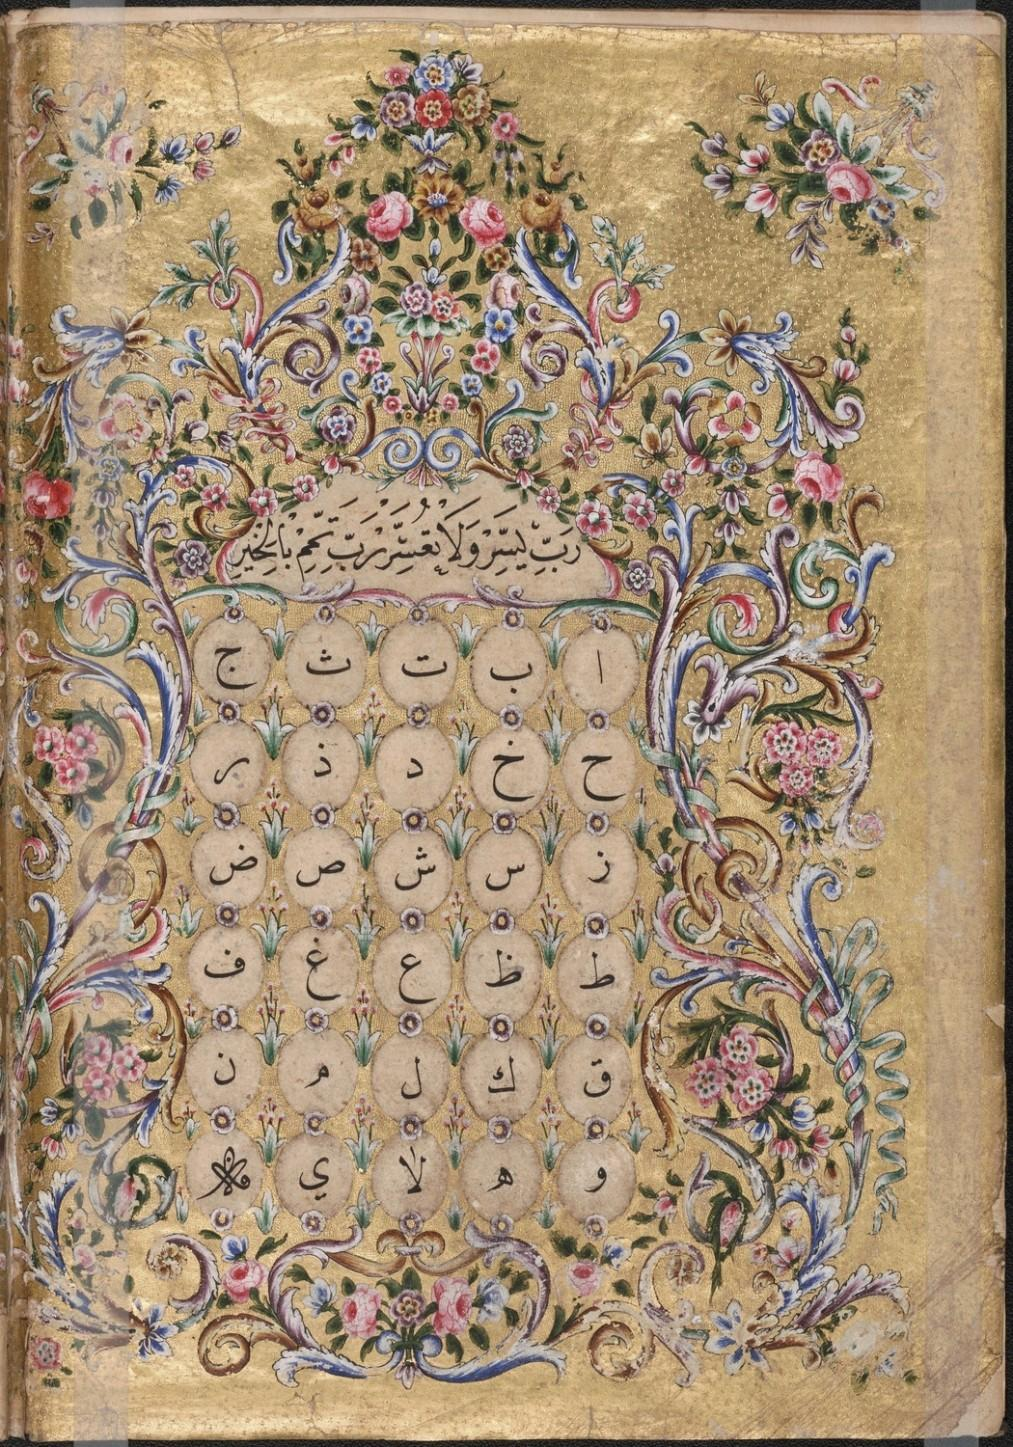 رَبِّ يَسِّرْ وَلَا تُعَسِّرْ رَبِّ تَمِّمْ بِالْخَيْرِ
ا ب ت ث ج
ح خ د ذ ر
ز س ش ص ض
ط ظ ع غ ف
ق ك ل م ن
و ه لا ي